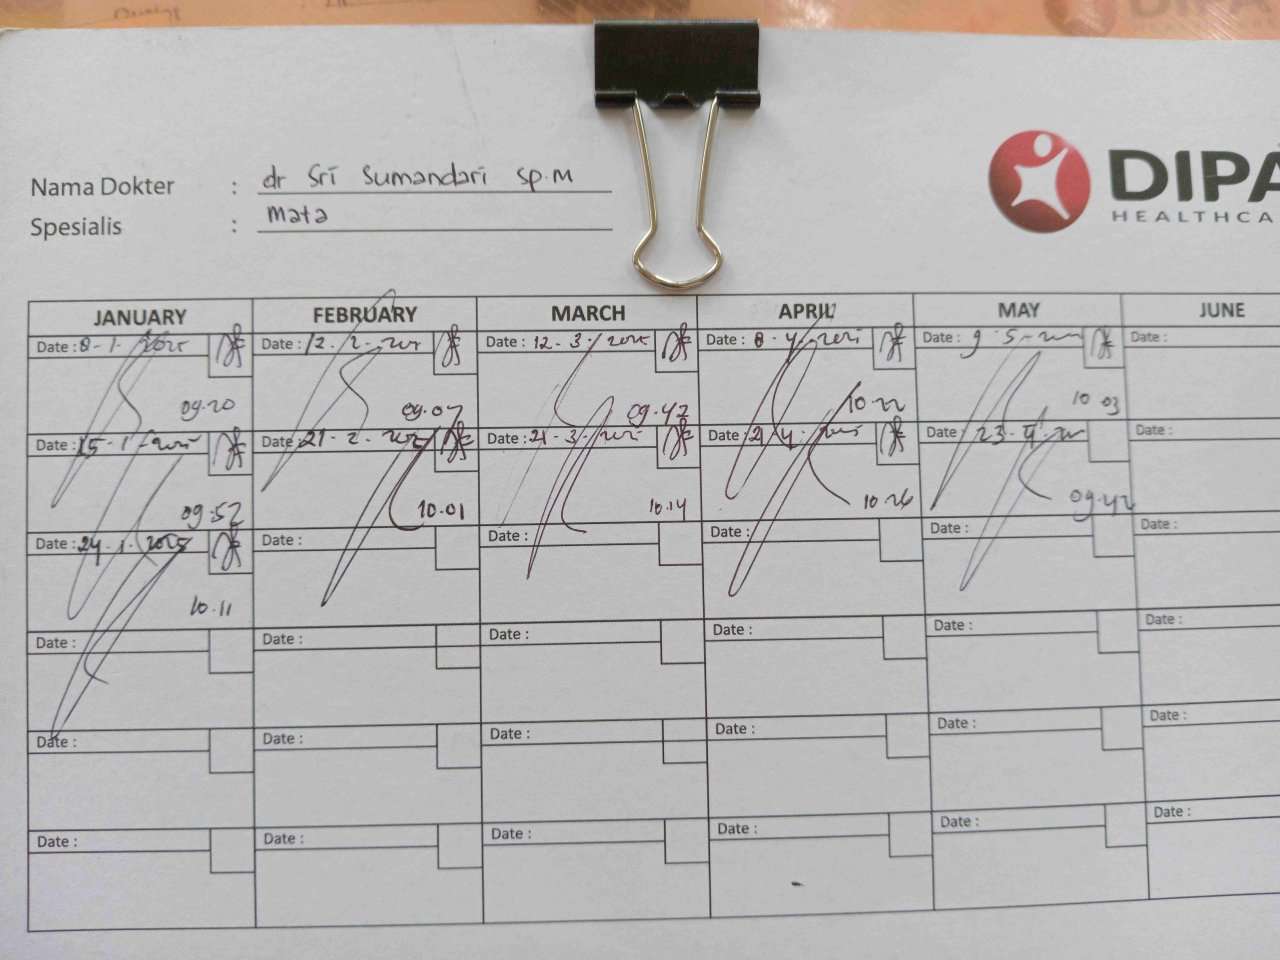 DIPA
HEALTHCA
Nama Dokter : dr Sri Sumandari sp.M
Spesialis : Mata
JANUARY FEBRUARY MARCH APRIL MAY JUNE
Date : 8-1-2025 Date : 12-2-2025 Date : 12-3-2025 Date : 8-4-2025 Date : 9-5-2025 Date :
09.20 09.07 09.42 10.22 10 03
Date : 15-1-2025 Date : 21-2-2025 Date : 21-3-2025 Date : 21-4-2025 Date : 23- Date :
09.52 10.01 10.14 10.26 09.42
Date : 24-1-2025 Date : Date : Date : Date : Date :
10.11
Date : Date : Date : Date : Date : Date :
Date : Date : Date : Date : Date : Date :
Date : Date : Date : Date : Date : Date :